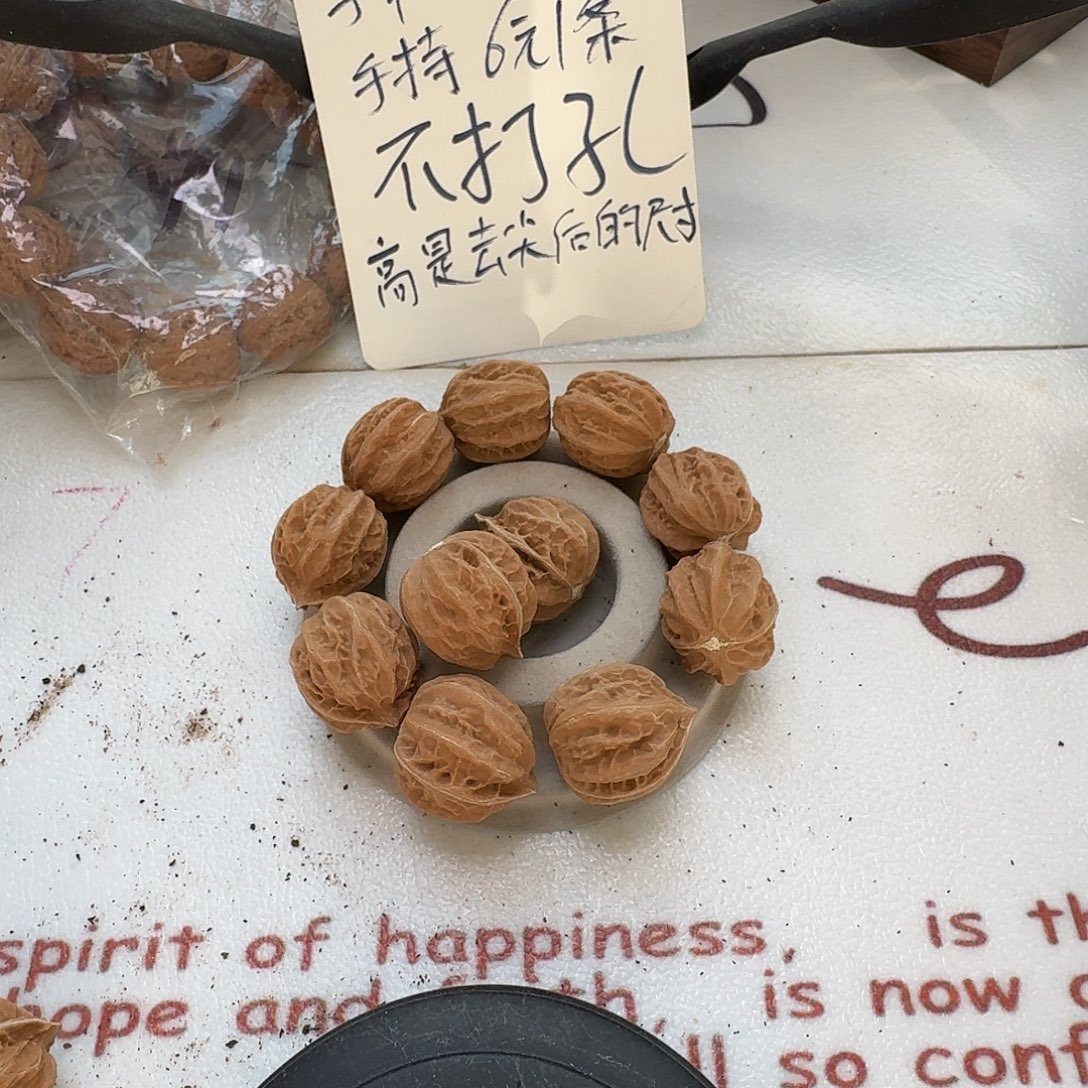 手持 6元1条
不打孔
高是去尖后的尺寸
e
spirit of happiness, is th
hope and faith, is now
ll so conf